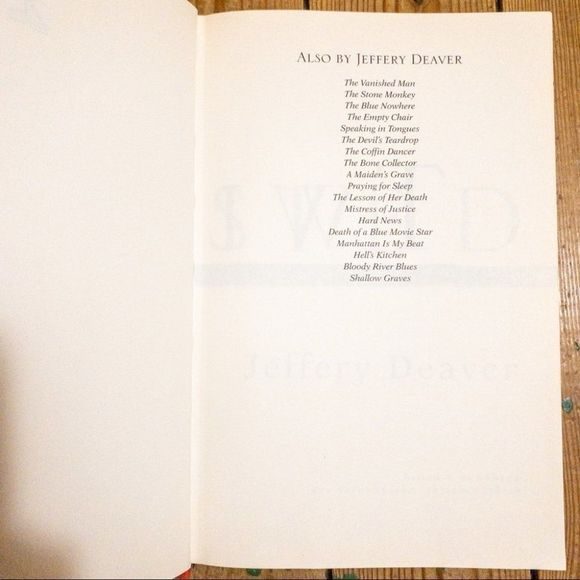 ALSO BY JEFFERY DEAVER
The Vanished Man
The Stone Monkey
The Blue Nowhere
The Empty Chair
Speaking in Tongues
The Devil's Teardrop
The Coffin Dancer
The Bone Collector
A Maiden's Grave
Praying for Sleep
The Lesson of Her Death
Mistress of Justice
Hard News
Death of a Blue Movie Star
Manhattan Is My Beat
Hell's Kitchen
Bloody River Blues
Shallow Graves
Jeffery Deaver